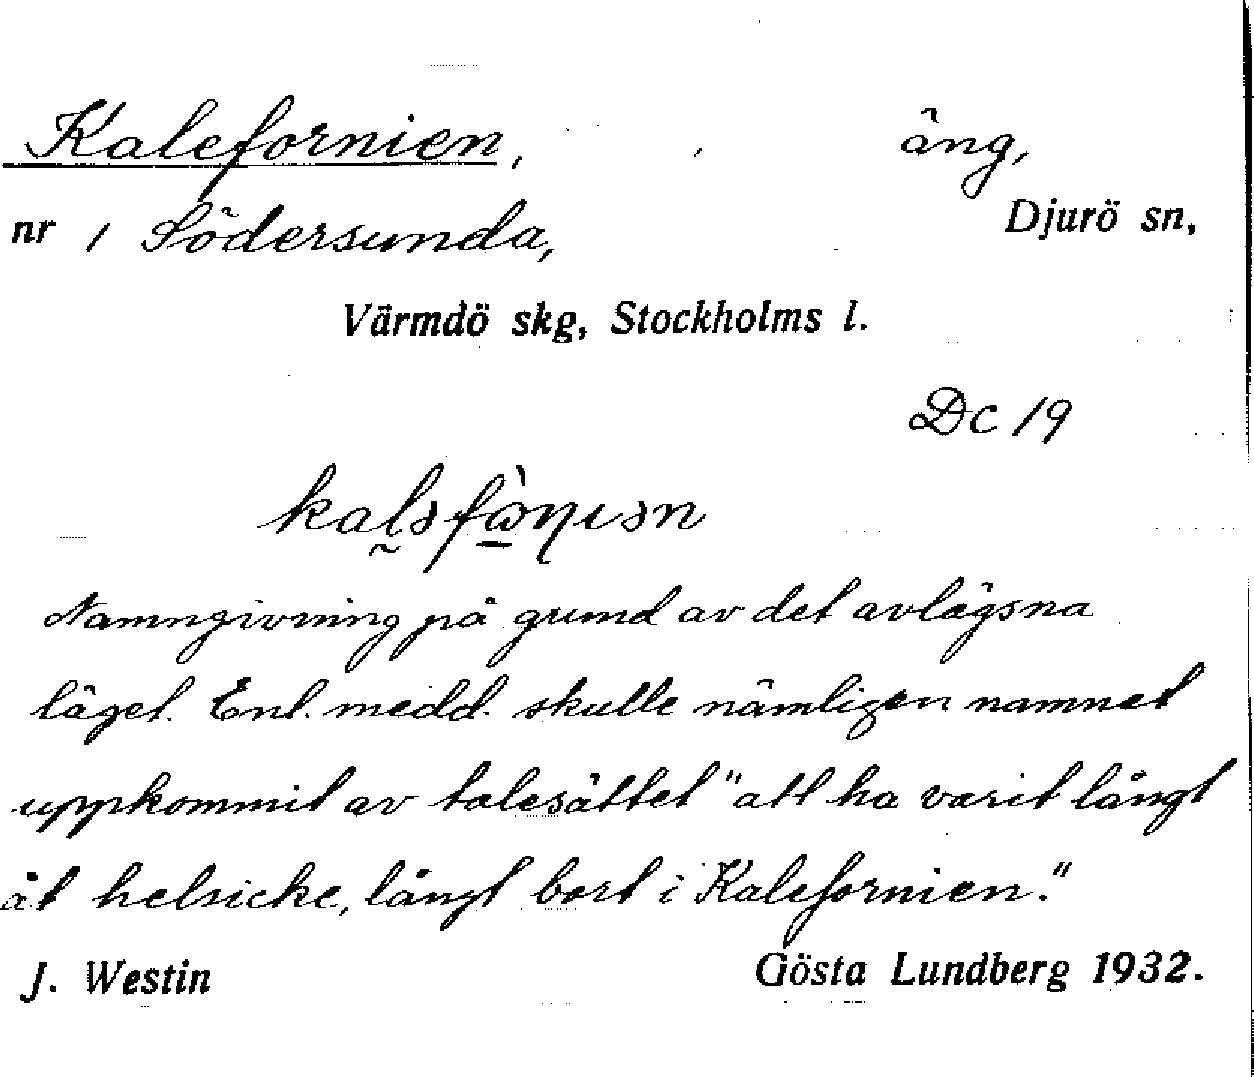 Kalefornien, äng,
nr 1 Södersunda, Djurö sn,
Värmdö skg, Stockholms l.
Dc 19
Namngivning på grund av det avlägsna
läget. Enl. medd. skulle nämligen namnet
uppkommit av talesättet "att ha varit långt
åt helsicke, långt bort i Kalefornien."
J. Westin Gösta Lundberg 1932.